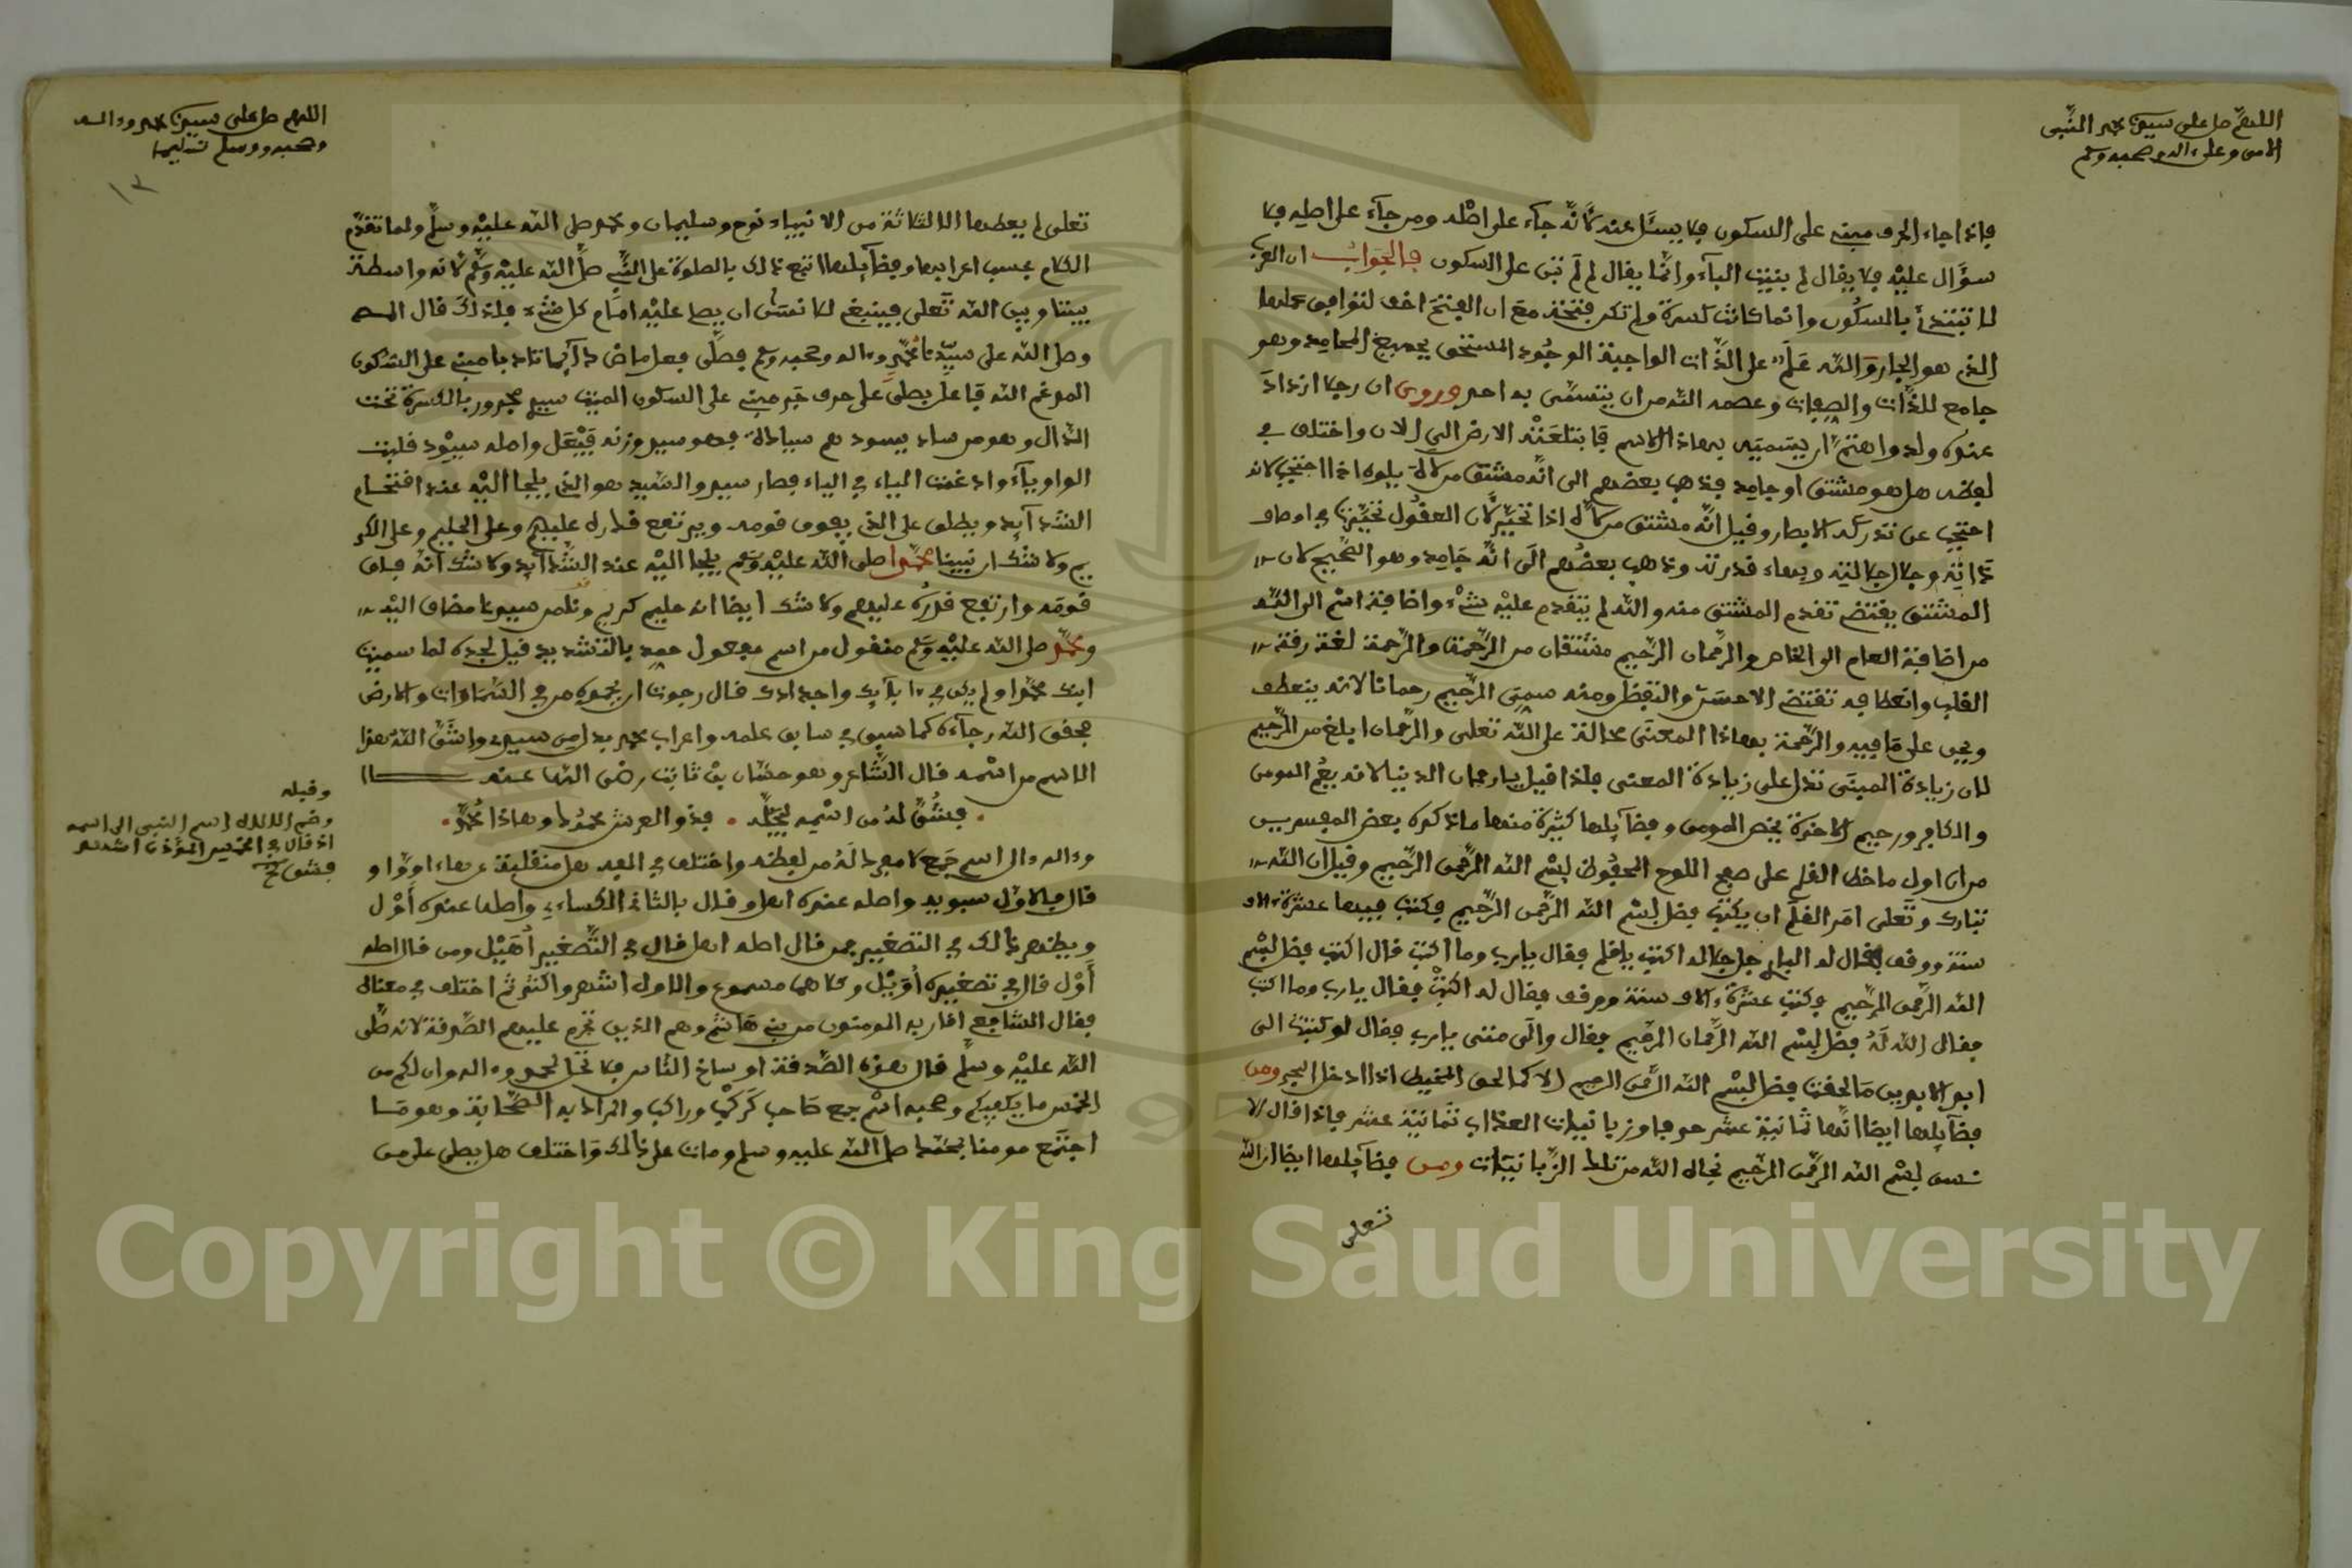 اللهم صل على سيدنا محمد النبي
الامي وعلى ءاله وصحبه وسلم
فاذا جاء الحرف مبني على السكون فلا يسئل عنه لانه جآء على اصله ومن جآء على اصله فلا
سؤال عليه فلا يقال لم بنيت البآء وانما يقال لم لم تبن على السكون فالجواب ان العرب
لا تبتدئ بالسكون وانما كانت كسرة ولم تكن فتحة مع ان الفتح اخف لتوافق عملها
الذي هو الجار والله علم على الذات الواجبة الوجود المستحق لجميع المحامد وهو
جامع للذات والصفات وعصمه الله من ان يتسمى به احد وروي ان رجلا ازداد
عنده ولد واهتم ان يسميه بهاذا الاسم فابتلعته الارض الى الان واختلف في
لفظه هل هو مشتق او جامد فذهب بعضهم الى انه مشتق من لاه يلوه اذا احتجب لانه
احتجب عن تدركه الابصار وقيل انه مشتق من اله اذا تحير لان العقول تحيرت في اوصاف
ذاته وجال جلاليته وبهاء قدرته وذهب بعضهم الى انه جامد وهو الصحيح لان
المشتق يقتضي تقدم المشتق منه والله لم يتقدم عليه شيء واضافة اسم الى الله
من اضافة العام الى الخاص والرحمان الرحيم مشتقان من الرحمة والرحمة لغة رقة
القلب وانعطافه تقتضي الاحسن والتفضل ومنه سمي الرحيم رحمانا لانه ينعطف
ويحن على ما فيه والرحمة بهاذا المعنى محالة على الله تعلى والرحمان ابلغ من الرحيم
لان زيادة المبنى تدل على زيادة المعنى فلذا قيل يا رحمان الدنيا لانه يعم المومن
والكافر ورحيم الاخرة يخص المومن وفضآيلها كثيرة منها ما ذكره بعض المفسرين
من ان اول ما خط القلم على صفح اللوح المحفوظ بسم الله الرحمن الرحيم وقيل ان الله
تبارك وتعلى امر القلم ان يكتب فضل بسم الله الرحمن الرحيم فكتب فيها عشرة ءالاف
سنة ووقف فقال له البار جل جلاله اكتب يا قلم فقال يارب وما اكتب قال اكتب فضل بسم
الله الرحمن الرحيم فكتب عشرة ءالاف سنة ووقف فقال له اكتب فقال يارب وما اكتب
فقال الله له فضل بسم الله الرحمان الرحيم فقال والى متى يارب فقال لو كتبت الى
ابد الابدين ما لحقت فضل بسم الله الرحمن الرحيم الا كما لحق المخيط اذا ادخل البحر ومن
فضآيلها ايضا انها ثمانية عشر حرفا وزبانيات العذاب ثمانية عشر فاذا قال الا
نسان بسم الله الرحمن الرحيم نجاه الله من تلك الزبانيات ومن فضآيلها ايضا ان الله
تعلى
اللهم صل على سيدنا محمد وءاله
وصحبه وسلم تسليما
١٣
تعلى لم يعطها الا لثلاثة من الانبياء نوح وسليمان ومحمد صلى الله عليه وسلم ولما تقدم
الكلام بحسب اعرابها وفضآيلها اتبع ذالك بالصلوة على النبي صلى الله عليه وسلم لانه واسطة
بيننا وبين الله تعلى فينبغي ان يصلى عليه امام كل شيء فلذالك قال
وصلى الله على سيدنا محمد وءاله وصحبه وسلم فصلى فعل ماض مبني على السكون
الله فاعل بصلى على حرف جر مبني على السكون الميت سيد مجرور بالكسرة تحت
الدال وهو من ساد يسود سيادة فهو سيد وزنه فيعل واصله سيود فلبت
الواو يآء وادغمت الياء في الياء فصار سيد والسيد هو الذي يلجا اليه عند اقتحام
الشدآيد ويطلق على الذي يفوق قومه ويرتفع قدره عليهم وعلى الحليم وعلى الكر
يم ولا شك ان نبينا محمدا صلى الله عليه وسلم يلجا اليه عند الشدآيد ولا شك انه فاق
قومه وارتفع قدره عليهم ولا شك ايضا انه حليم كريم سيد مضاف اليه
ومحمد صلى الله عليه وسلم منقول من اسم مفعول حمد بالتشديد قيل لجده لما سميت
ابنك محمدا ولم يكن في ءابآيك واجدادك قال رجوت ان يحمده من في السماوات والارض
فحقق الله رجآءه كما سبق في سابق علمه واعراب محمد بدل من سيد واشتق الله هذا
الاسم من اسمه قال الشاعر وهو حسان بن ثابت رضى الله عنه
فشق له من اسمه ليجله . فذو العرش محمود وهاذا محمد
وقبله
وضم الالاه اسم النبي الى اسمه
اذ قال في الخمس المؤذن اشهد
فشق الخ
وءاله ءال اسم جمع لا مفرد له من لفظه واختلف في الفه هل منقلبة عن هاء او واو
قال بالاول سبويه واصله عنده اهل وقال بالثاني الكساءي واصله عنده أول
ويظهر ذالك في التصغير فمن قال اصله اهل قال في التصغير أهيل ومن قال اصله
أول قال في تصغيره أويل وكلاهما مسموع والاول اشهر واكثر ثم اختلف في معناه
فقال الشافعي اقاربه المومنون من بني هاشم وهم الذين تحرم عليهم الصدقة لانه صلى
الله عليه وسلم قال هذه الصدقة اوساخ الناس فلا تحل لمحمد وءاله وان لكم من
الخمس ما يكفيكم وصحبه اسم جمع صاحب كركب وراكب والمراد به الصحابة وهو من
اجتمع مومنا بمحمد صلى الله عليه وسلم ومات على ذالك واختلف هل يصلى على من
Copyright © King Saud University